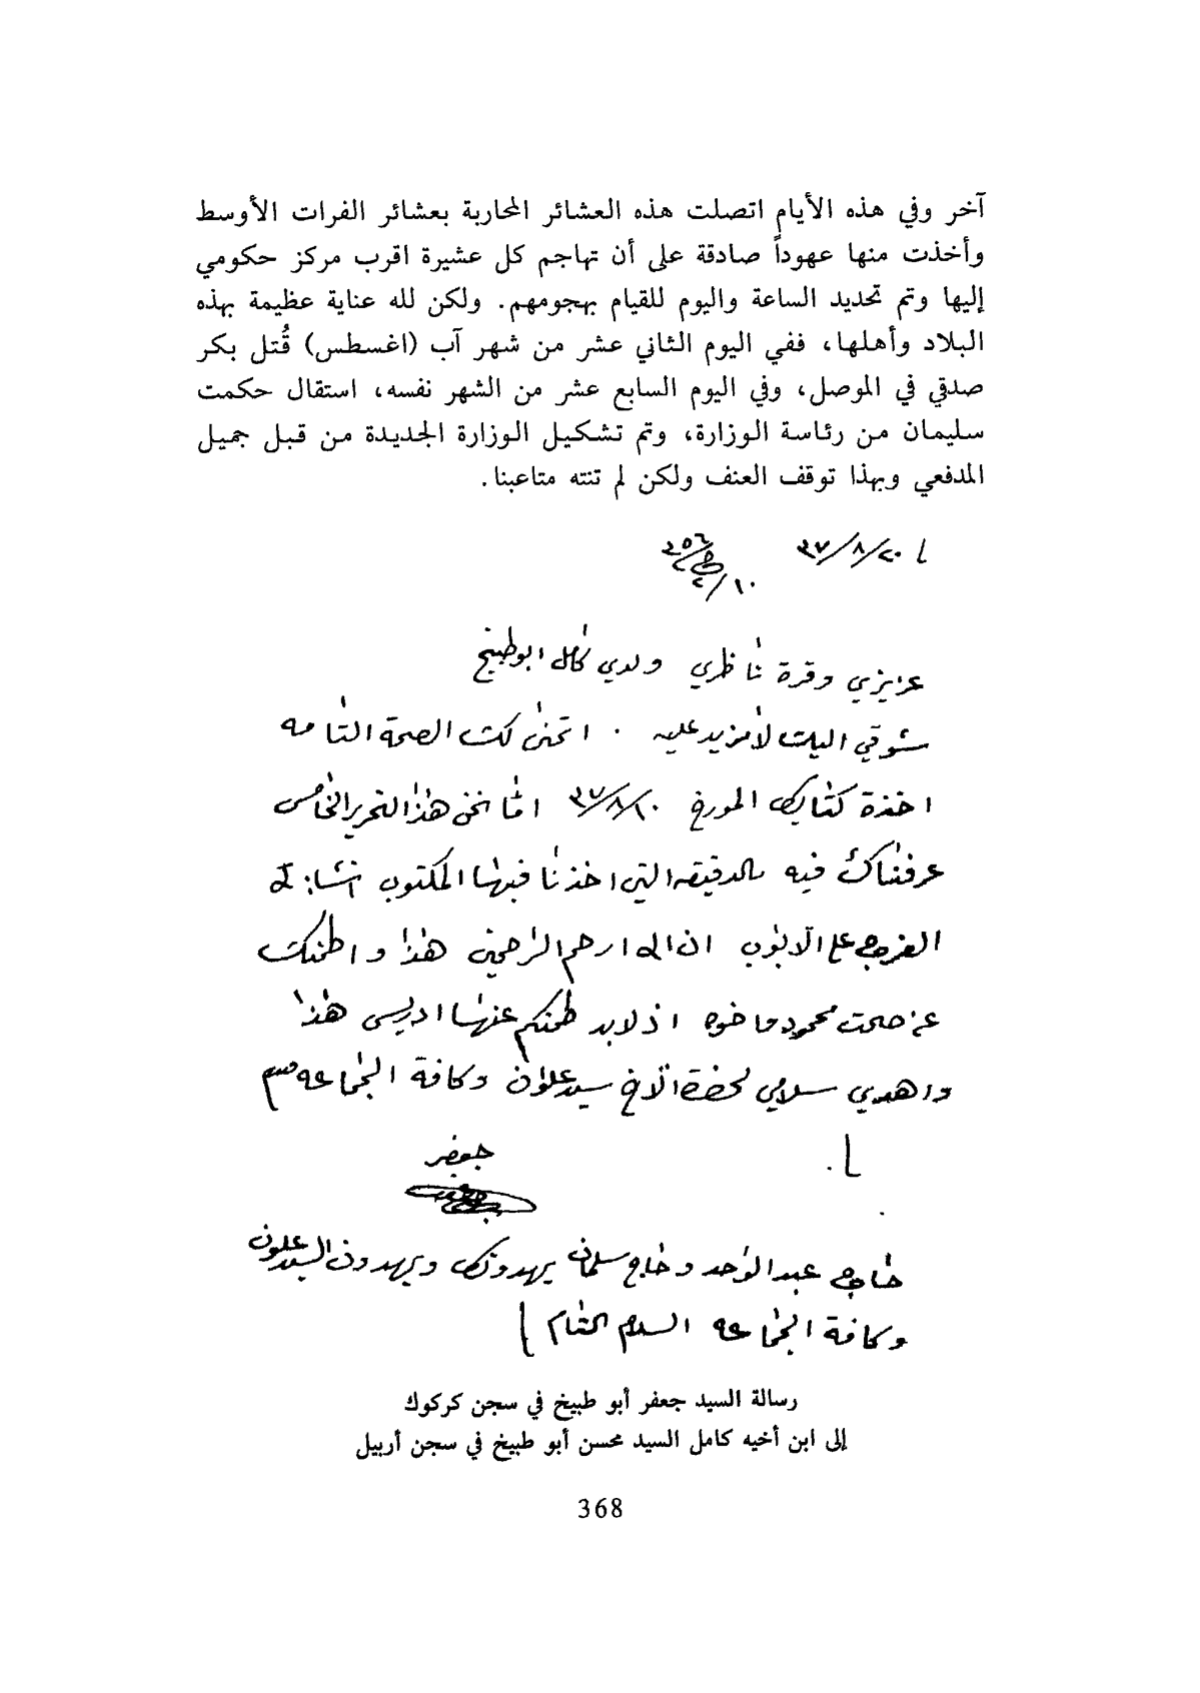 آخر وفي هذه الأيام اتصلت هذه العشائر المحاربة بعشائر الفرات الأوسط
وأخذت منها عهوداً صادقة على أن تهاجم كل عشيرة اقرب مركز حكومي
إليها وتم تحديد الساعة واليوم للقيام بهجومهم. ولكن لله عناية عظيمة بهذه
البلاد وأهلها، ففي اليوم الثاني عشر من شهر آب (اغسطس) قُتل بكر
صدقي في الموصل، وفي اليوم السابع عشر من الشهر نفسه، استقال حكمت
سليمان من رئاسة الوزارة، وتم تشكيل الوزارة الجديدة من قبل جميل
المدفعي وبهذا توقف العنف ولكن لم تنته متاعبنا.
٣٧/٨/٢٠
عزيزي وقرة ناظري ولدي كامل ابو طبيخ
شوقي اليك لا مزيد عليه . اتمنى لك الصحة التامه
اخذة كتابك المورخ ٣٧/٨/١٠ اما نحن هذا التحرير الخامس
عرفناك فيه بالدقيقه التي اخذنا فيها المكتوب انشاء الله
الفرج على الابواب ان الله ارحم الراحمين هذا واطمنك
عن صحت محمود واخوه اذ لابد طمنكم عنها ادريس هذا
واهدي سلامي لحضرة الاخ سيد علوان وكافة الجماعه
جعفر
حاج عبد الواحد وحاج سلمان يهدونك ويهدون السيد علوان
وكافة الجماعه السلام التام
رسالة السيد جعفر أبو طبيخ في سجن كركوك
إلى ابن أخيه كامل السيد محسن أبو طبيخ في سجن أربيل
368